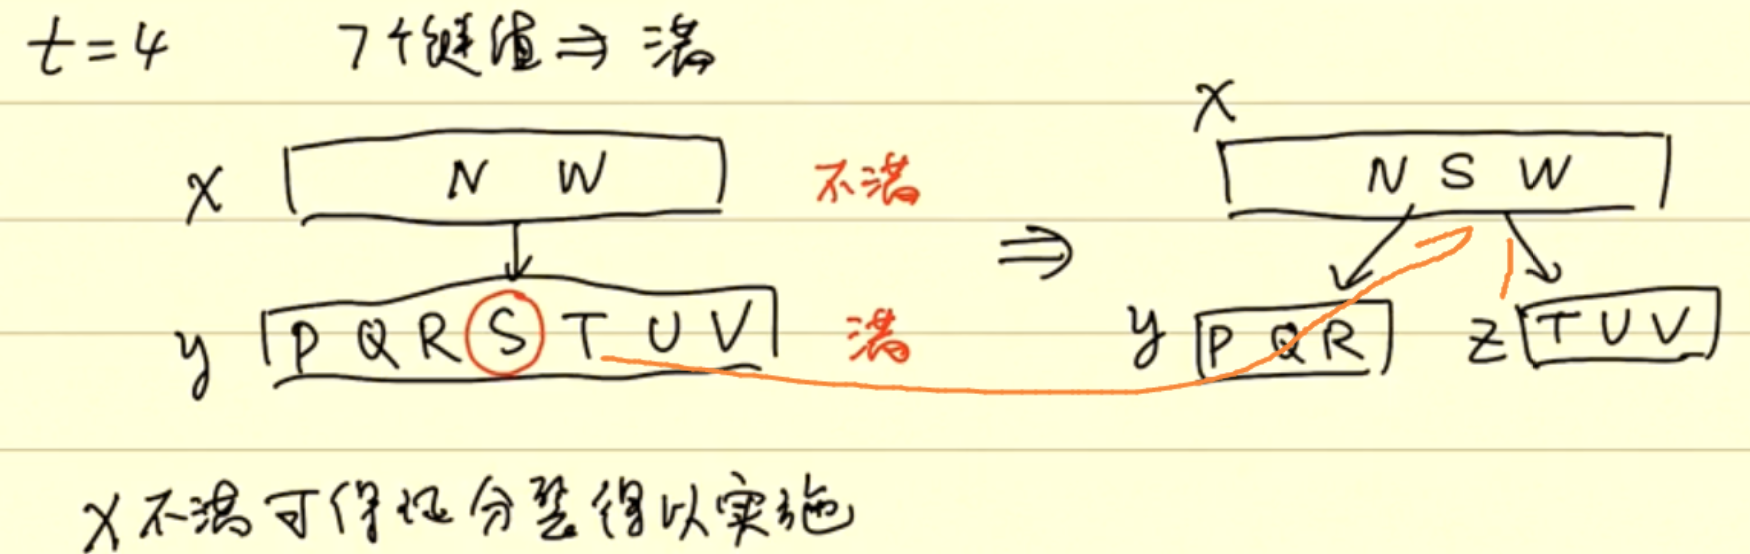 t=4 7个键值⇒满
X N W 不满 ⇒ X N S W
y P Q R S T U V 满 y P Q R z T U V
X不满可保证分裂得以实施